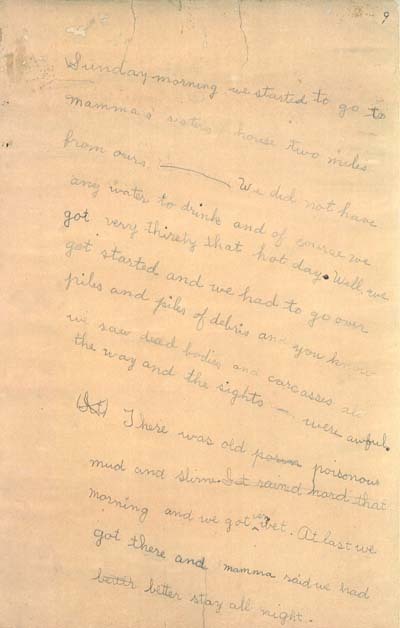 9
Sunday morning we started to go to
mamma's sisters house two miles
from ours. —— We did not have
any water to drink and of course we
got very thirsty that hot day. Well, we
got started and we had to go over
piles and piles of debris and you know
we saw dead bodies and carcasses all
the way and the sights — were awful.
(It) There was old poison poisonous
mud and slime. It rained hard that
morning and we got very wet. At last we
got there and mamma said we had
better stay all night.